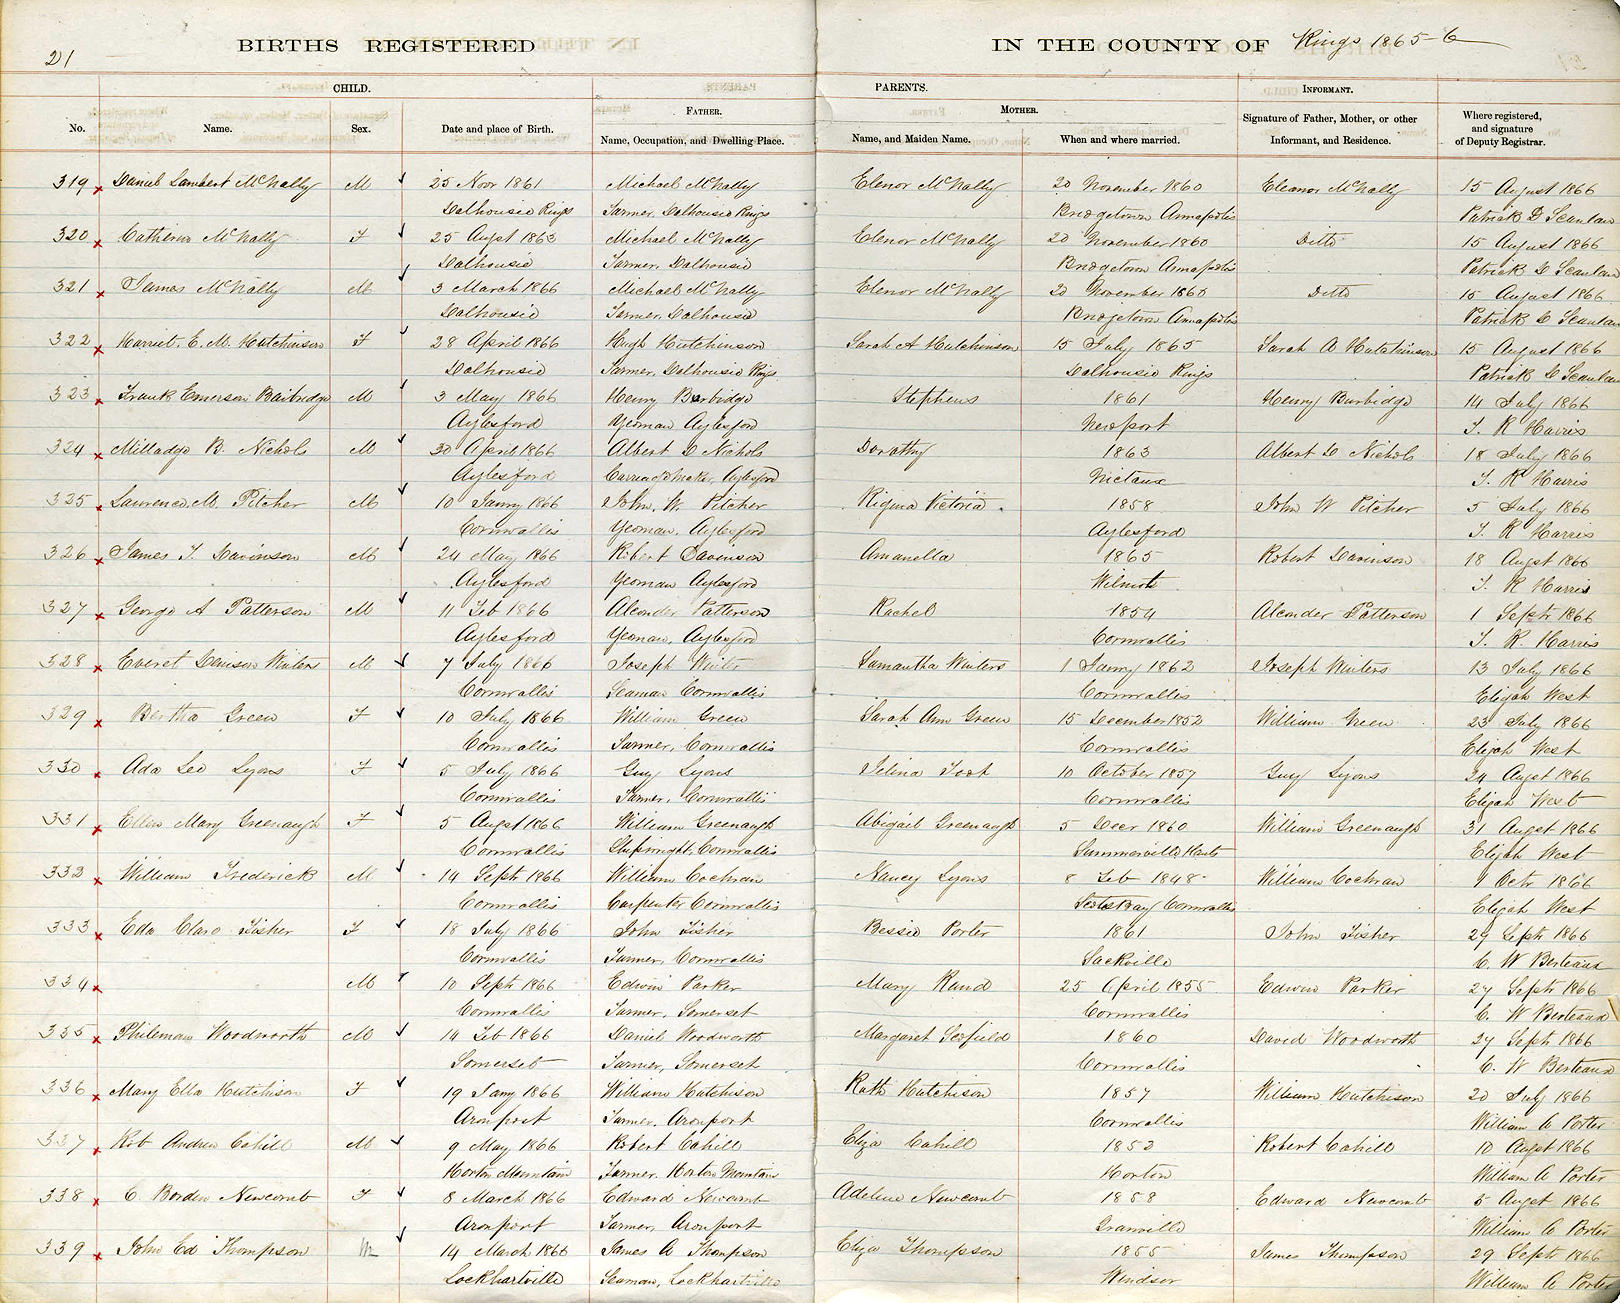 21
BIRTHS REGISTERED IN THE COUNTY OF Kings 1865-6
CHILD. PARENTS. INFORMANT.
FATHER. MOTHER.
No. Name. Sex. Date and place of Birth. Name, Occupation, and Dwelling Place. Name, and Maiden Name. When and where married. Signature of Father, Mother, or other Informant, and Residence. Where registered, and signature of Deputy Registrar.
319 Daniel Lambert McNally M 25 Novr 1861 Michael McNally Elenor McNally 20 November 1860 Eleanor McNally 15 August 1866
Dalhousie Kings Farmer, Dalhousie Kings Bridgetown Annapolis Patrick D Scanlan
320 Catherine McNally F 25 Augst 1863 Michael McNally Elenor McNally 20 November 1860 Ditto 15 August 1866
Dalhousie Farmer, Dalhousie Bridgetown Annapolis Patrick D Scanlan
321 James McNally M 3 March 1866 Michael McNally Elenor McNally 20 November 1860 Ditto 15 August 1866
Dalhousie Farmer, Dalhousie Bridgetown Annapolis Patrick D Scanlan
322 Harriet. E. M. Hutchinson F 28 April 1866 Hugh Hutchinson Sarah A Hutchinson 15 July 1865 Sarah A Hutchinson 15 August 1866
Dalhousie Farmer, Dalhousie Kings Dalhousie Kings Patrick D Scanlan
323 Frank Emerson Barbidge M 3 May 1866 Henry Burbidge Stephens 1861 Henry Burbidge 14 July 1866
Aylesford Yeoman Aylesford Newport T. R Harris
324 Milladge B. Nichols M 30 April 1866 Albert D Nichols Dorothy 1863 Albert D Nichols 18 July 1866
Aylesford Carriage Maker, Aylesford Nictaux T. R Harris
325 Laurence, M. Pitcher M 10 Janry 1866 John, W. Pitcher Rigina Victoria 1858 John W Pitcher 5 July 1866
Cornwallis Yeoman, Aylesford Aylesford T. R Harris
326 James T. Davinson M 24 May 1866 Robert Davinson Amanella 1865 Robert Davinson 18 Augst 1866
Aylesford Yeoman Aylesford Wilmot T. R Harris
327 George A Patterson M 11 Feb 1866 Alconder Patterson Rachel 1854 Alconder Patterson 1 Septr 1866
Aylesford Yeoman, Aylesford Cornwallis T. R. Harris
328 Everet Davison Winters M 7 July 1866 Joseph Winter Samantha Winters 1 Janry 1862 Joseph Winters 13 July 1866
Cornwallis Seaman Cornwallis Cornwallis Elijah West
329 Bertha Green F 10 July 1866 William Green Sarah Ann Green 15 December 1852 William Green 23 July 1866
Cornwallis Farmer, Cornwallis Cornwallis Elijah West
330 Ada Leo Lyons F 5 July 1866 Guy Lyons Selina Foot 10 October 1857 Guy Lyons 24 Augst 1866
Cornwallis Farmer, Cornwallis Cornwallis Elijah West
331 Ellen Mary Greenaugh F 5 Augst 1866 William Greenaugh Abigail Greenaugh 5 Decr 1860 William Greenaugh 31 Augst 1866
Cornwallis Shipwright, Cornwallis Summerville Hants Elijah West
332 William Frederick M 14 Septr 1866 William Cochran Nancy Lyons 8 Feb 1848 William Cochran 9 Octr 1866
Cornwallis Carpenter Cornwallis Scots Bay Cornwallis Elijah West
333 Eda Clare Fisher F 18 July 1866 John Fisher Bessie Porter 1861 John Fisher 29 Septr 1866
Cornwallis Farmer, Cornwallis Sackville C. W Berteaux
334 M 10 Septr 1866 Edwin Parker Mary Rand 25 April 1855 Edwin Parker 27 Septr 1866
Cornwallis Farmer, Somerset Cornwallis C. W Berteaux
335 Phileman Woodworth M 14 Feb 1866 Daniel Woodworth Margaret Scofield 1860 David Woodworth 27 Septr 1866
Somerset Farmer, Somerset Cornwallis C. W Berteaux
336 Mary Ella Hutchison F 19 Jany 1866 William Hutchison Ruth Hutchison 1857 William Hutchison 20 July 1866
Avonport Farmer, Avonport Cornwallis William A Porter
337 Rob Andrew Cahill M 9 May 1866 Robert Cahill Eliza Cahill 1853 Robert Cahill 10 Augst 1866
Horton Mountain Farmer, Horton Mountain Horton William A Porter
338 C Borden Newcomb F 8 March 1866 Edward Newcomb Adeline Newcomb 1858 Edward Newcomb 5 Augst 1866
Avonport Farmer, Avonport Granville William A Porter
339 John Ed Thompson M 14 March 1866 James A Thompson Eliza Thompson 1855 James Thompson 29 Septr 1866
Lockhartville Seaman, Lockhartville Windsor William A Porter